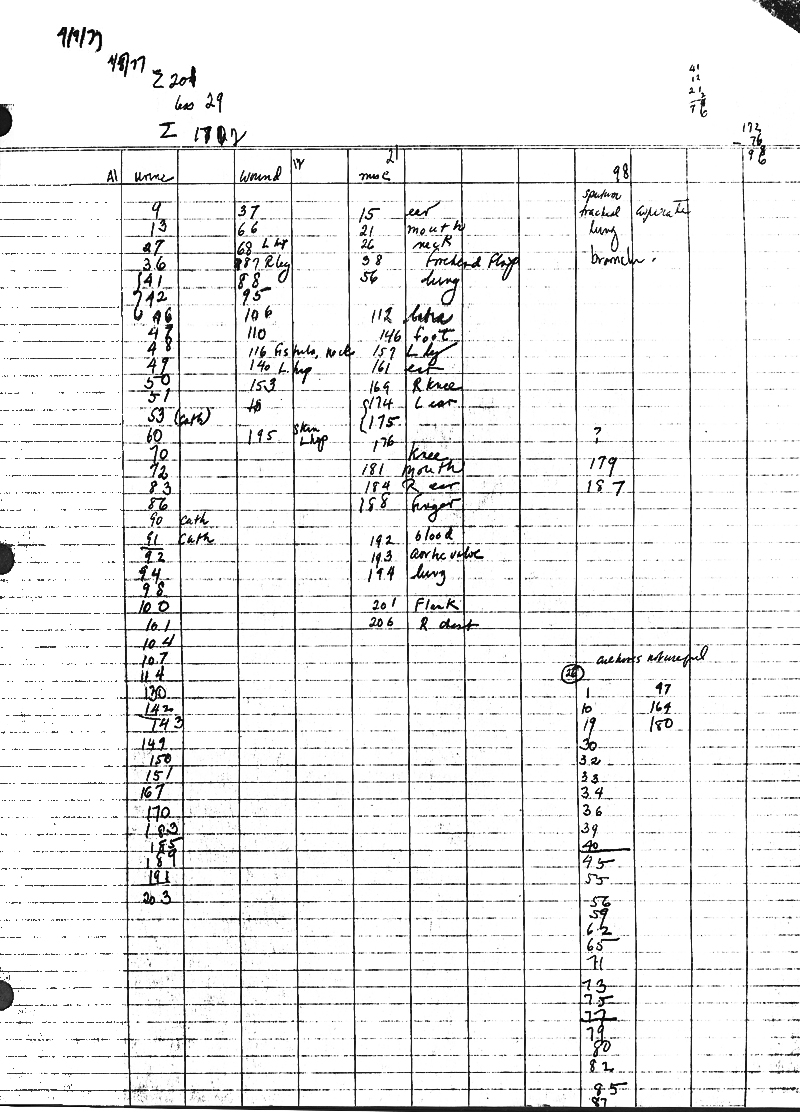 4/9/77
4/8/77
Σ 201
less 29
Σ
41
12
21
172
- 76
98
A1 urine wound 14 misc 21 98
sputum
9 37 15 ear tracheal aspirate
13 66 21 mouth lung
27 68 L hip 26 neck
36 187 R leg 38 bronch.
41 88 56 lung
42 95
46 106 112
47 110 146 foot
48 116 fistula, neck 157 L
49 140 L hip 161 ear
50 153 169 R knee
51 174 L ear
53 (cath) 175
60 195 skin L hip 176 ?
70 knee
72 181 mouth 179
83 184 R ear 187
86 188 finger
90 cath
91 cath 192 blood
92 193 aortic valve
94 194 lung
98
100 201 Flank
101 206 R chest
104
107
114 26
130 1 97
142 10 164
143 19 180
149 30
150 32
151 33
167 34
170 36
183 39
185 40
189 45
191 55
203 56
59
62
65
71
73
75
77
79
80
82
85
87